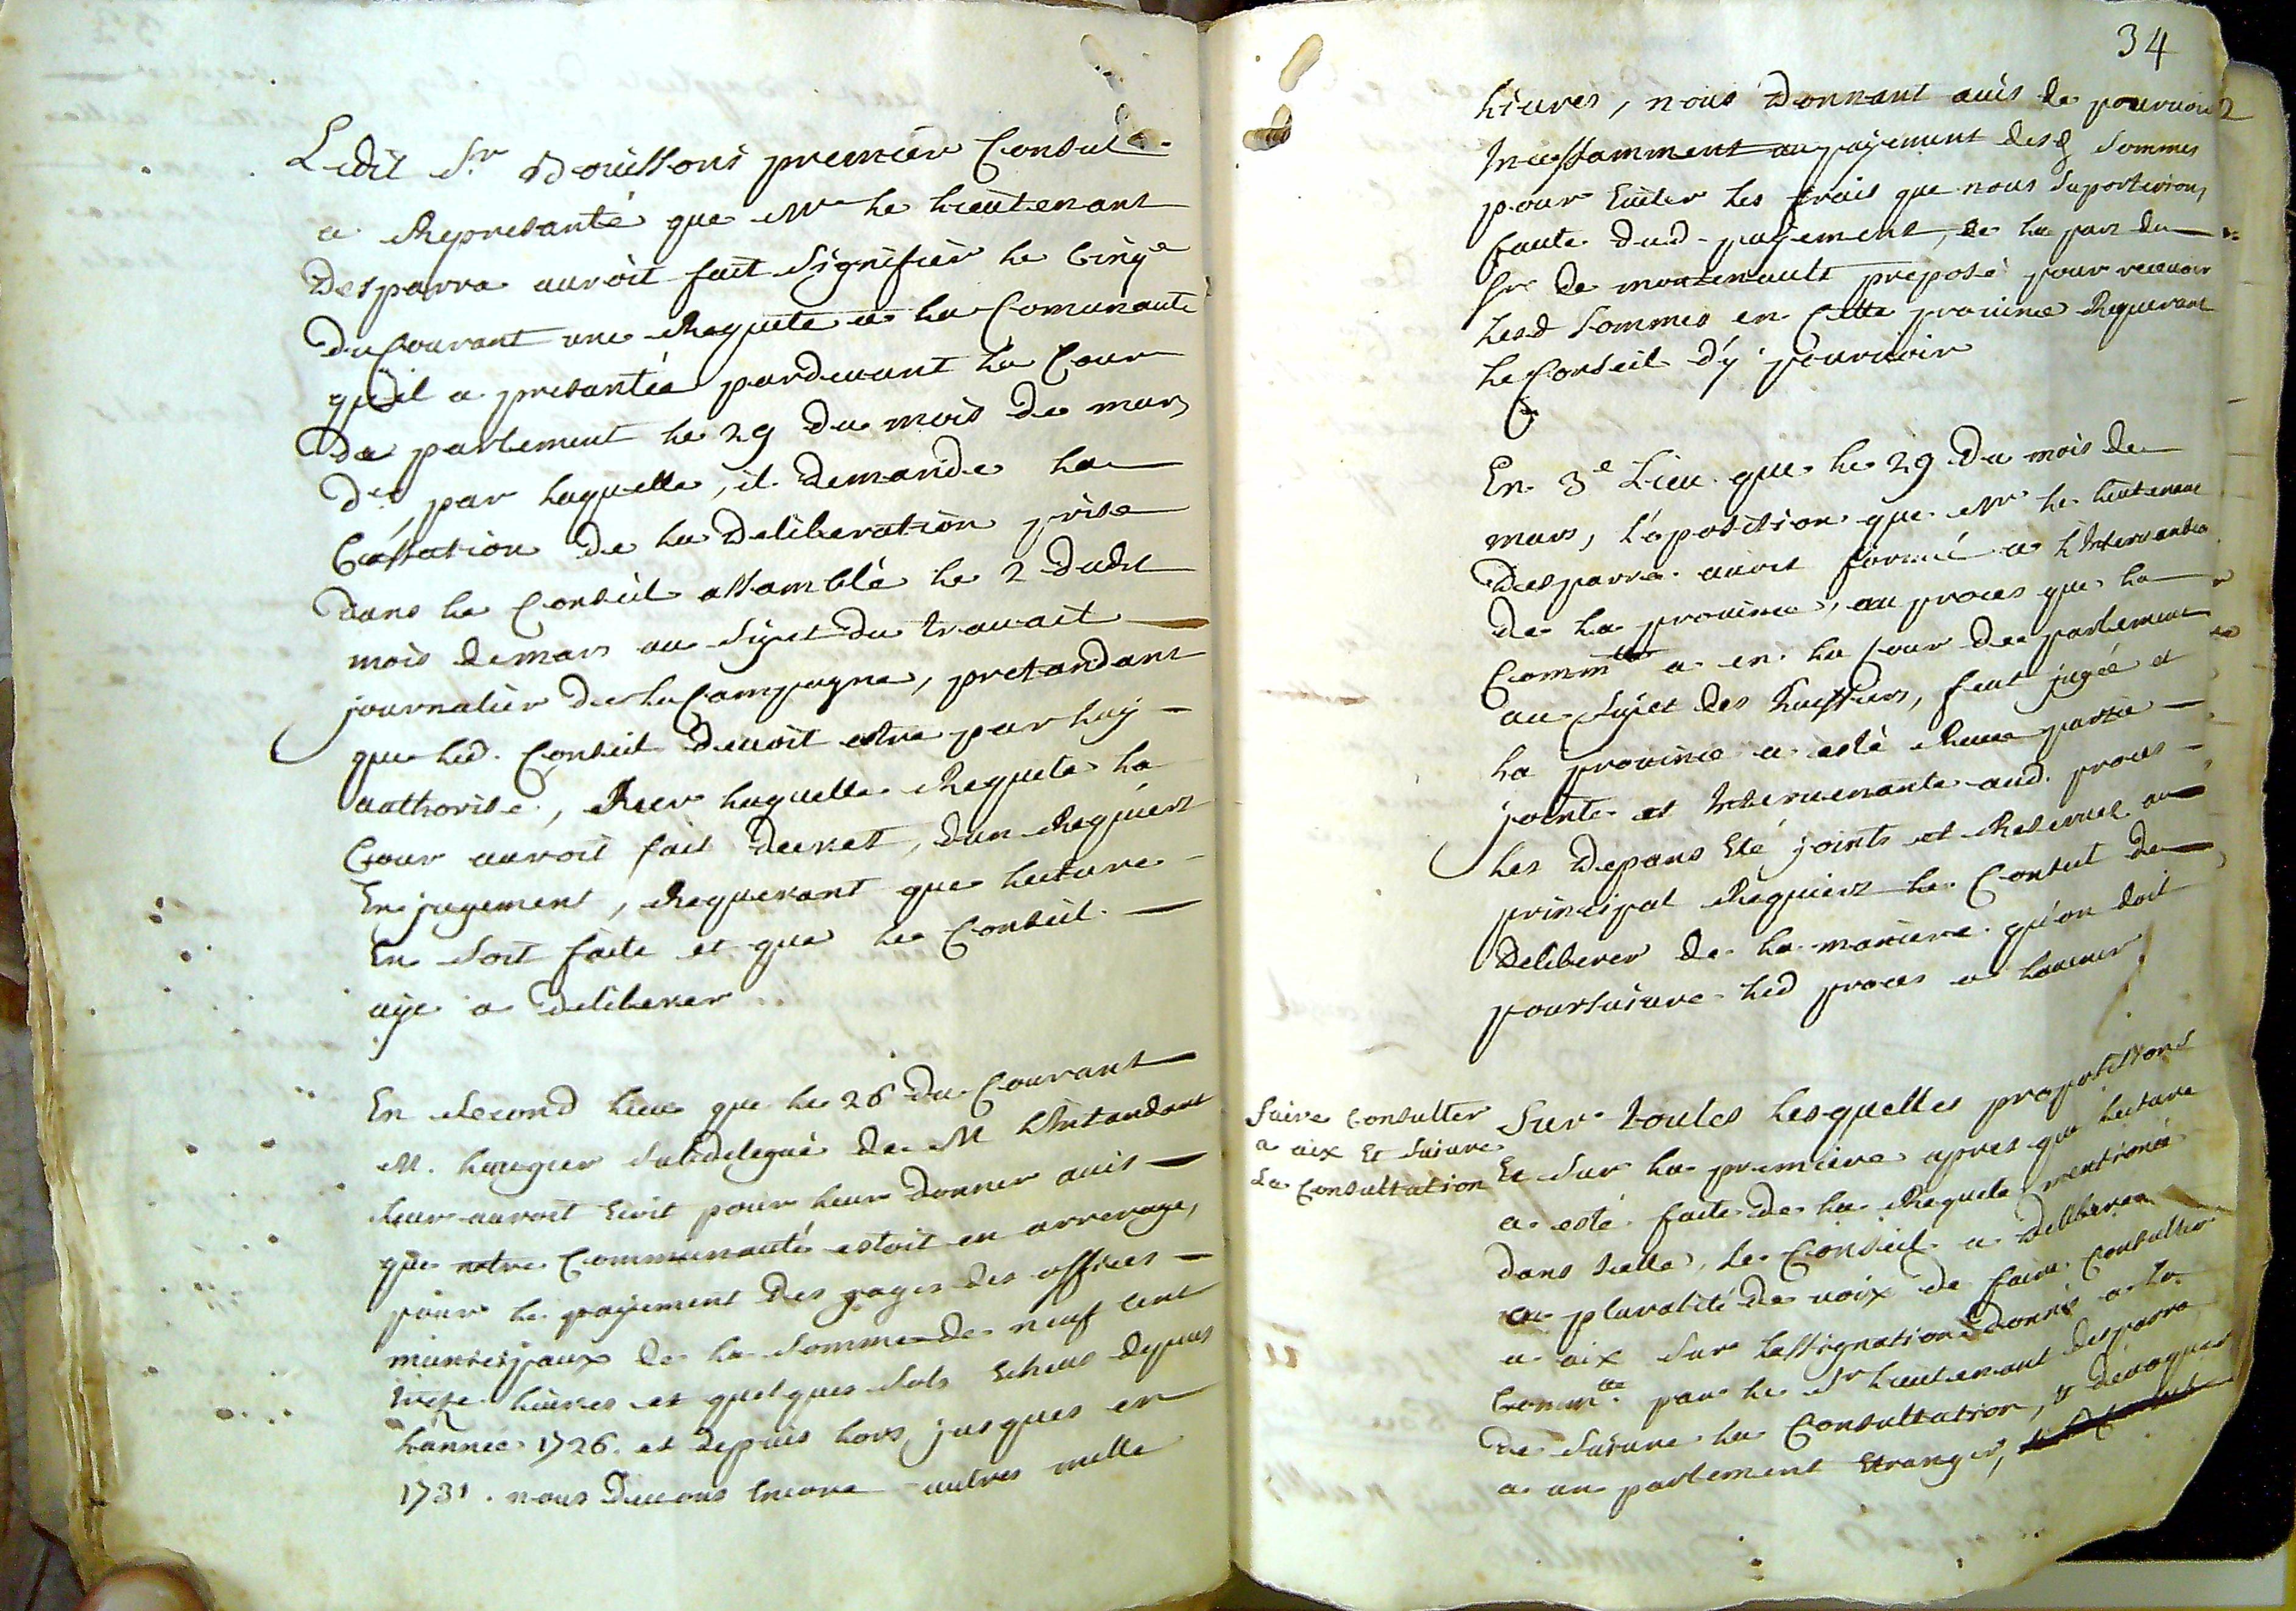 Ledit Sr Bouissons premier Consul
a Represanté que Mr le lieutenant
Desparra auroit fait signifier le cinqe
du Courant une Requete a la Comunauté
qu'il a presantée pardevant la Cour
de parlement le 29 du mois de mars
der, par laquelle, il demande la
Cassation de la Deliberation prise
dans le Conseil assamblé le 2 dudt
mois de mars au sujet du travail
journalier de la Campagne, pretandant
que led. Conseil devoit estre par luy
authorisé, sur laquelle Requete la
Cour auroit fait decret, dun Requiers
En jugement, Requerant que lecture
En soit faite et que le Conseil
aye a Deliberer
En second lieu que le 26 du Courant
M. laugier subdelegué de M l'Intandant
leur auroit Ecrit pour leur donner avis
que notre Communauté estoit en arrerage,
pour le payement des gages des offices
municipaux de la somme de neuf cent
livres et quelques sols Echeus depuis
lannée 1726. et depuis lors jusques en
1731. nous devons Encore autres mille
34
livres, nous Donnant avis de pourvoir
Incessamment au payement desd sommes
pour Eviter les frais que nous suporterions
faute dud. payement, de la part du
Sr de montenault preposé pour recevoir
lesd sommes en Cette province Requerant
le Conseil d'y pourvoir
En 3e Lieu que le 29 du mois de
mars, l'oposition que Mr le lieutenant
Desparra avoit formé a l'Intervention
de la province, au proces que la
Commte a en la Cour de parlement
au sujet des huissiers, feut jugée et
la province a esté Receue partie
jointe et Intervenante aud. proces
les Depans Eté joints et Reservés au
principal Requiers le Conseil de
Deliberer de la maniere qu'on doit
poursuivre led proces a lavenir
faire Consulter
a aix Et suivre
La Consultation
Sur toutes lesquelles propositions
Et sur la premiere apres que lecture
a esté faite de la Requete mentionée
dans icelle, Le Conseil a Deliberé
a pluralité de voix de faire Consulter
a aix sur lassignation donné a la
Commte. par le Sr lieutenant desparra
de suivre la Consultation, & devoquer
a un parlement Etranger,